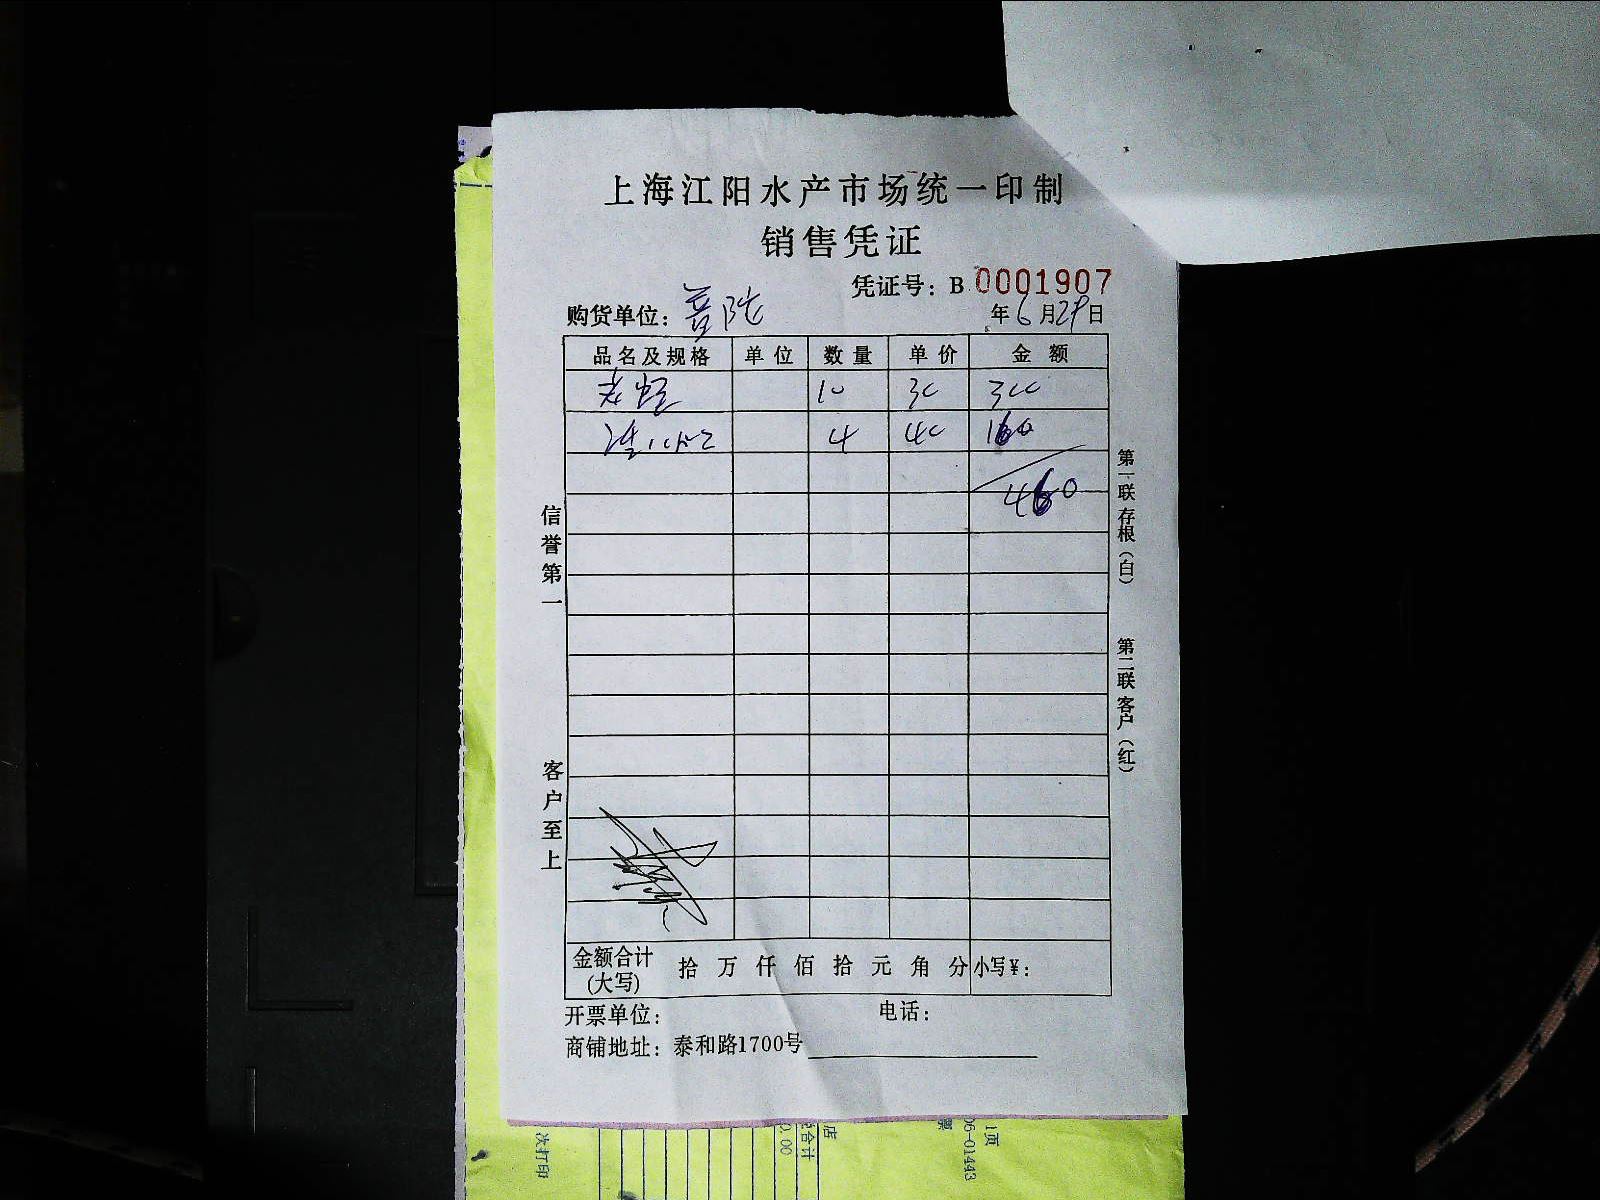 上海江阳水产市场统一印制
销售凭证
凭证号：B 0001907
购货单位：普陀 年6月29日
品名及规格 单位 数量 单价 金额
10 30 300
4 40 160
460
信誉第一
客户至上
第一联 存根（白）
第二联 客户（红）
金额合计(大写) 拾万仟佰拾元角分 小写¥：
开票单位： 电话：
商铺地址：泰和路1700号
次打印
合计
0.00
店
票
06-01443
1页